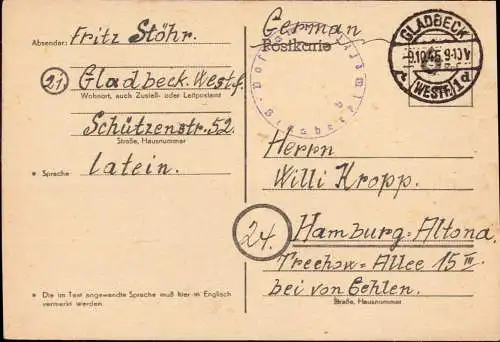 Absender: Fritz Stöhr.
21 Gladbeck. Westf.
Wohnort, auch Zustell- oder Leitpostamt
Schützenstr. 52.
Straße, Hausnummer
* Sprache latein.
* Die im Text angewandte Sprache muß hier in Englisch
vermerkt werden.
German
Postkarte
GLADBECK
-9.10.45.9-10V
(WESTF.) 1d
Herrn
Willi Kropp.
24. Hamburg-Altona.
Treskow-Allee 15 III
bei von Oehlen.
Straße, Hausnummer